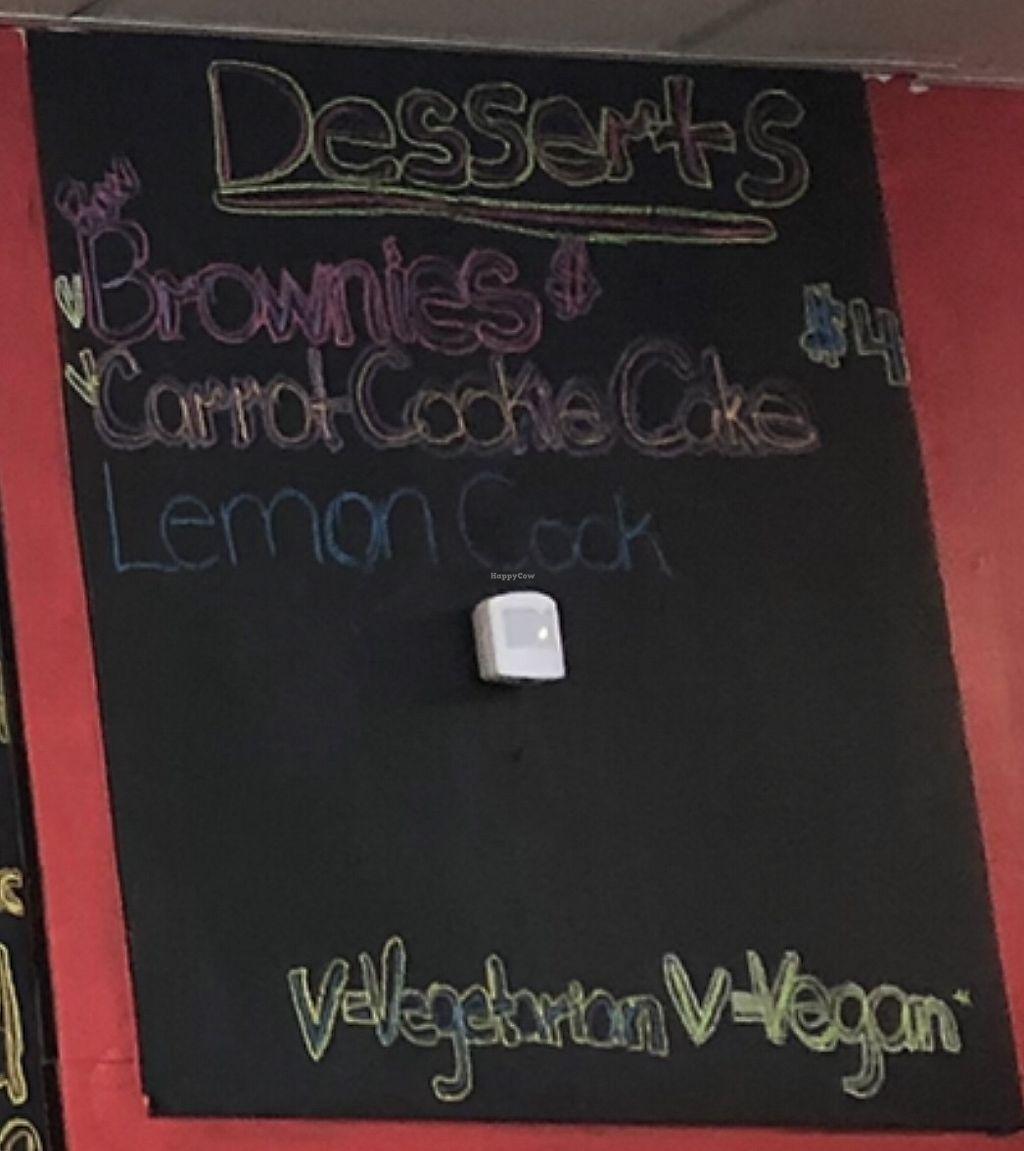 Desserts
Brownies $
$4
V Carrot Cookie Cake
Lemon Cook
HappyCow
V=Vegetarian V=Vegan*